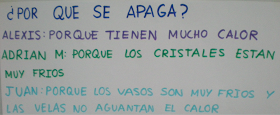 ¿POR QUE SE APAGA?
ALEXIS: PORQUE TIENEN MUCHO CALOR
ADRIAN M: PORQUE LOS CRISTALES ESTAN
MUY FRIOS
JUAN: PORQUE LOS VASOS SON MUY FRIOS Y
LAS VELAS NO AGUANTAN EL CALOR